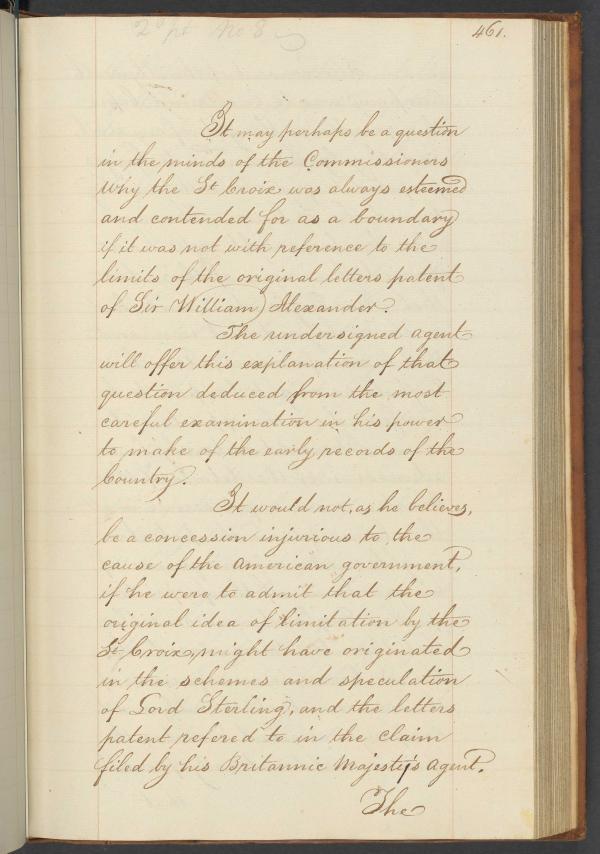 2d pt No 8
461.
It may perhaps be a question
in the minds of the Commissioners
why the St Croix was always esteemed
and contended for as a boundary
if it was not with reference to the
limits of the original letters patent
of Sir William Alexander.
The undersigned agent
will offer this explanation of that
question deduced from the most
careful examination in his power
to make of the early records of the
Country.
It would not, as he believes,
be a concession injurious to the
cause of the American government,
if he were to admit that the
original idea of limitation by the
St Croix, might have originated
in the schemes and speculation
of Lord Sterling, and the letters
patent refered to in the claim
filed by his Britannic Majesty's agent.
The